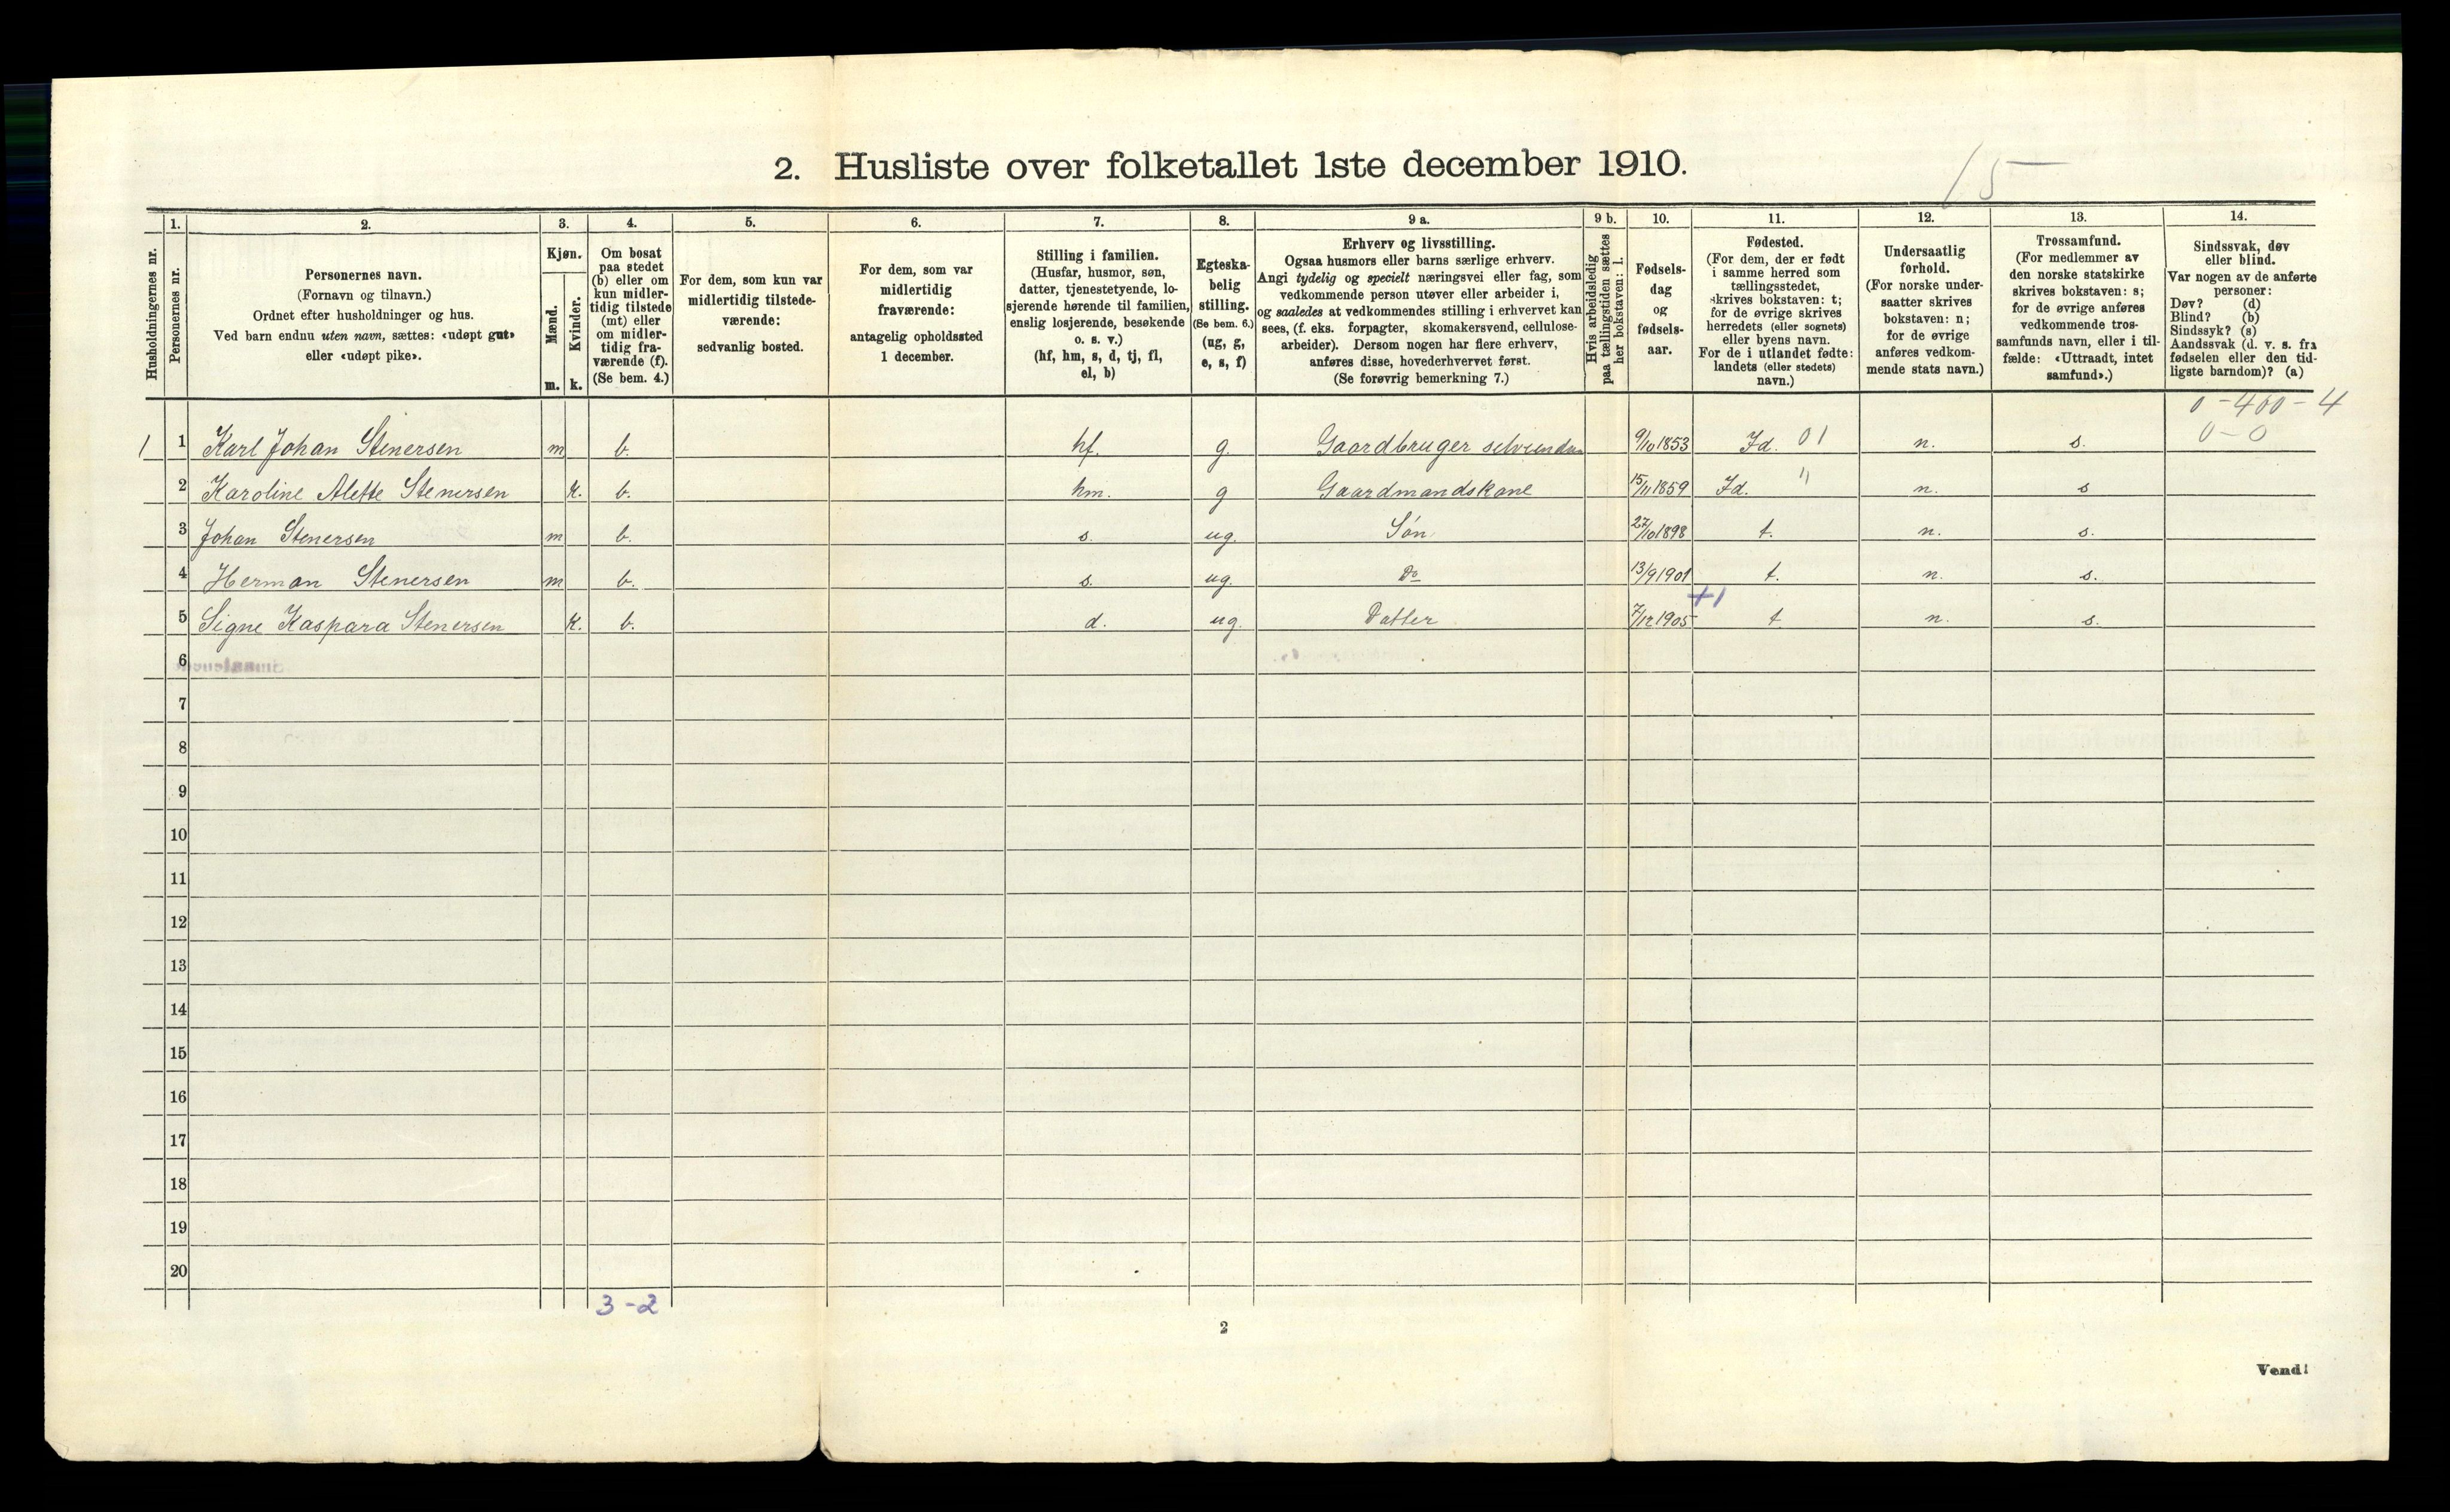 15
2. Husliste over folketallet 1ste december 1910.
1. 2. 3. 4. 5. 6. 7. 8. 9 a. 9 b. 10. 11. 12. 13. 14.
Husholdningernes nr.
Personernes nr.
Personernes navn.
(Fornavn og tilnavn.)
Ordnet efter husholdninger og hus.
Ved barn endnu uten navn, sættes: «udøpt gut»
eller «udøpt pike».
Kjøn.
Mænd.
Kvinder.
m. k.
Om bosat
paa stedet
(b) eller om
kun midler-
tidig tilstede
(mt) eller
om midler-
tidig fra-
værende (f).
(Se bem. 4.)
For dem, som kun var
midlertidig tilstede-
værende:
sedvanlig bosted.
For dem, som var
midlertidig
fraværende:
antagelig opholdssted
1 december.
Stilling i familien.
(Husfar, husmor, søn,
datter, tjenestetyende, lo-
sjerende hørende til familien,
enslig losjerende, besøkende
o. s. v.)
(hf, hm, s, d, tj, fl,
el, b)
Egteska-
belig
stilling.
(Se bem. 6.)
(ug, g,
e, s, f)
Erhverv og livsstilling.
Ogsaa husmors eller barns særlige erhverv.
Angi tydelig og specielt næringsvei eller fag, som
vedkommende person utøver eller arbeider i,
og saaledes at vedkommendes stilling i erhvervet kan
sees, (f. eks. forpagter, skomakersvend, cellulose-
arbeider). Dersom nogen har flere erhverv,
anføres disse, hovederhvervet først.
(Se forøvrig bemerkning 7.)
Hvis arbeidsledig
paa tællingstiden sættes
her bokstaven: l.
Fødsels-
dag
og
fødsels-
aar.
Fødested.
(For dem, der er født
i samme herred som
tællingsstedet,
skrives bokstaven: t;
for de øvrige skrives
herredets (eller sognets)
eller byens navn.
For de i utlandet fødte:
landets (eller stedets)
navn.)
Undersaatlig
forhold.
(For norske under-
saatter skrives
bokstaven: n;
for de øvrige
anføres vedkom-
mende stats navn.)
Trossamfund.
(For medlemmer av
den norske statskirke
skrives bokstaven: s;
for de øvrige anføres
vedkommende tros-
samfunds navn, eller i til-
fælde: «Uttraadt, intet
samfund».)
Sindssvak, døv
eller blind.
Var nogen av de anførte
personer:
Døv? (d)
Blind? (b)
Sindssyk? (s)
Aandssvak (d. v. s. fra
fødselen eller den tid-
ligste barndom)? (a)
0-400-4
0-0
1 1 Karl Johan Stenersen m b. hf. g. Gaardbruger 9/10 1853 Id. 01 n. s.
2 Karoline Alette Stenersen k. b. hm. g Gaardmandskone 15/11 1859 Id. " n. s
3 Johan Stenersen m b. s. ug. Søn 27/10 1898 t. n. s.
4 Herman Stenersen m b. s. ug. Do 13/9 1901 t. n. s.
+1
5 Signe Kaspara Stenersen k. b. d. ug. Datter 7/12 1905 t n. s.
6
7
8
9
10
11
12
13
14
15
16
17
18
19
20
3-2
2
Vend!